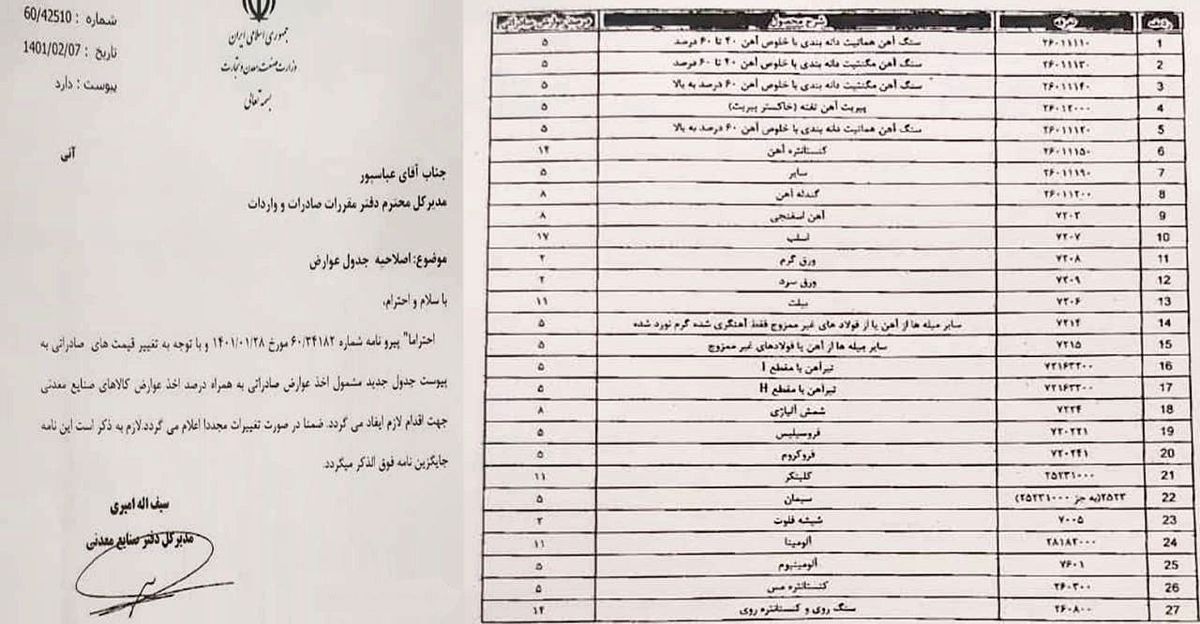 شماره : 60/42510
تاریخ : 1401/02/07
پیوست : دارد
جمهوری اسلامی ایران
وزارت صنعت، معدن و تجارت
بسمه تعالی
آنی
جناب آقای عباسپور
مدیرکل محترم دفتر مقررات صادرات و واردات
موضوع: اصلاحیه جدول عوارض
با سلام و احترام،
احتراما" پیرو نامه شماره ۶۰/۳۴۱۸۲ مورخ ۱۴۰۱/۰۱/۲۸ و با توجه به تغییر قیمت های صادراتی به
پیوست جدول جدید مشمول اخذ عوارض صادراتی به همراه درصد اخذ عوارض کالاهای صنایع معدنی
جهت اقدام لازم ایفاد می گردد. ضمنا در صورت تغییرات مجددا اعلام می گردد.لازم به ذکر است این نامه
جایگزین نامه فوق الذکر میگردد.
سیف اله امیری
مدیرکل دفتر صنایع معدنی
ردیف تعرفه شرح محصول درصد عوارض صادراتی
1 ۲۶۰۱۱۱۱۰ سنگ آهن هماتیت دانه بندی با خلوص آهن ۴۰ تا ۶۰ درصد ۵
2 ۲۶۰۱۱۱۳۰ سنگ آهن مگنتیت دانه بندی با خلوص آهن ۴۰ تا ۶۰ درصد ۵
3 ۲۶۰۱۱۱۴۰ سنگ آهن مگنتیت دانه بندی با خلوص آهن ۶۰ درصد به بالا ۵
4 ۲۶۰۱۲۰۰۰ پیریت آهن تفته (خاکستر پیریت) ۵
5 ۲۶۰۱۱۱۲۰ سنگ آهن هماتیت دانه بندی با خلوص آهن ۶۰ درصد به بالا ۵
6 ۲۶۰۱۱۱۵۰ کنسانتره آهن ۱۴
7 ۲۶۰۱۱۱۹۰ سایر ۵
8 ۲۶۰۱۱۲۰۰ گندله آهن ۸
9 ۷۲۰۳ آهن اسفنجی ۸
10 ۷۲۰۷ اسلب ۱۷
11 ۷۲۰۸ ورق گرم ۲
12 ۷۲۰۹ ورق سرد ۲
13 ۷۲۰۶ بیلت ۱۱
14 ۷۲۱۴ سایر میله ها از آهن یا از فولاد های غیر ممزوج فقط آهنگری شده گرم نورد شده ۵
15 ۷۲۱۵ سایر میله ها از آهن یا فولادهای غیر ممزوج ۵
16 ۷۲۱۶۳۲۰۰ تیرآهن با مقطع I ۵
17 ۷۲۱۶۳۳۰۰ تیرآهن با مقطع H ۵
18 ۷۲۲۴ شمش آلیاژی ۸
19 ۷۲۰۲۲۱ فروسیلیس ۵
20 ۷۲۰۲۴۱ فروکروم ۵
21 ۲۵۲۳۱۰۰۰ کلینکر ۱۱
22 ۲۵۲۳(به جز ۲۵۲۳۱۰۰۰) سیمان ۵
23 ۷۰۰۵ شیشه فلوت ۲
24 ۲۸۱۸۲۰۰۰ آلومینا ۱۱
25 ۷۶۰۱ آلومینیوم ۵
26 ۲۶۰۳۰۰ کنسانتره مس ۵
27 ۲۶۰۸۰۰ سنگ روی و کنسانتره روی ۱۴